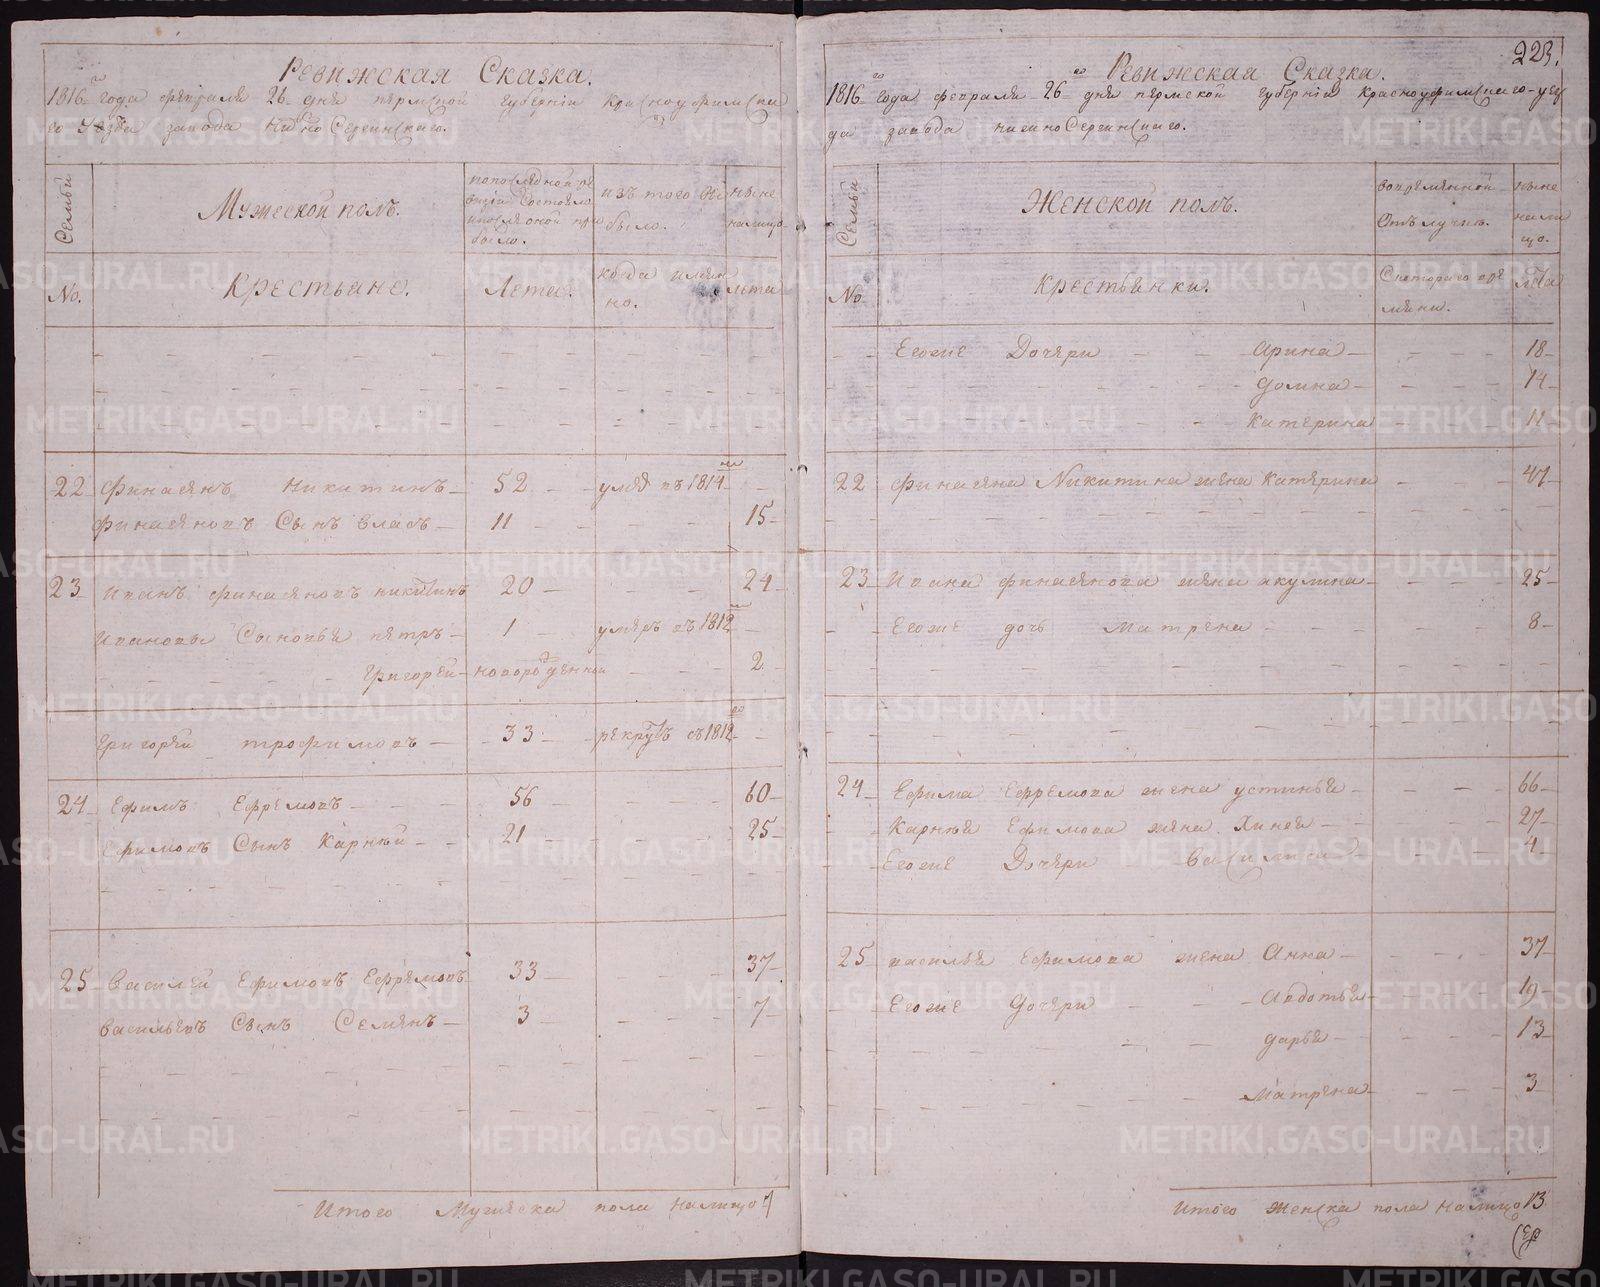 Ревижская Сказка.
1816го года февраля 26 дня пермской губернии Красноуфимска
го уезда завода Нижно Сергинскаго.
Семьи
Мужеской полъ.
по последной ре
визии состояло
и после оной при
было.
изъ того вы
было.
ныне
налицо
No.
Крестьяне.
Лета.
когда имян
но.
лета
22 Финаенъ Никитинъ 52 умре въ 1814м
Финаеновъ Сынъ власъ 11 15
23 Иванъ Финаеновъ никитинъ 20 24
Ивановы Сыновья петръ 1 умеръ въ 1812м
григорей новорожденной 2
григорей трофимовъ 33 рекрутъ съ 1812го
24 Ефимъ Ефремовъ 56 60
Ефимовъ Сынъ Карней 21 25
25 Василей Ефимовъ Ефремовъ 33 37
васильевъ Сынъ Семенъ 3 7
Итого Мужеска пола налицо 7
223.
Ревижская Сказка.
1816го года февраля 26го дня пермской губернии Красноуфимскаго уез
да завода нижно Сергинскаго.
Семьи
Женской полъ.
во временной
отлучке.
ныне
нали
цо.
No
Крестьянки.
С котораго вре
мени.
Лета
Его же Дочери Арина 18
домна 14
Катерина 11
22 Финаена Никитина жена Катерина 47
23 Ивана финаенова жена акулина 25
Его же дочь Матрена 8
24 Ефима Ефремова жена устинья 66
Карнея Ефимова жена Хинея 27
Его же Дочери василиса 4
25 василья Ефимова жена Анна 37
Его же дочери Авдотья 19
дарья 13
Матрена 3
Итого женска пола налицо 13
METRIKI.GASO-URAL.RU